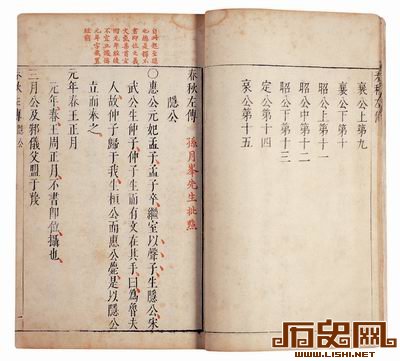 春秋左傳
襄公上第九
襄公下第十
昭公上第十一
昭公中第十二
昭公下第十三
定公第十四
哀公第十五
春秋左傳 孫月峯先生批點
隱公
〇惠公元妃孟子孟子卒繼室以聲子生隱公宋
武公生仲子仲子生而有文在其手曰爲魯夫
人故仲子歸于我生桓公而惠公薨是以隱公
立而奉之
元年春王正月
元年春王周正月不書即位攝也
三月公及邾儀父盟于蔑
春秋左傳 隱公
历史网
WWW.LISHI.NET